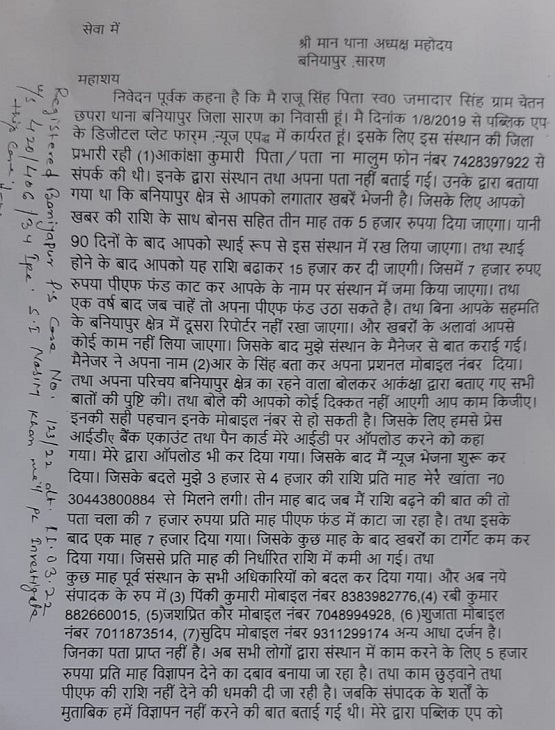 सेवा में
श्री मान थाना अध्यक्ष महोदय
बनियापुर ,सारण
महाशय
निवेदन पूर्वक कहना है कि मै राजू सिंह पिता स्व0 जमादार सिंह ग्राम चेतन
छपरा थाना बनियापुर जिला सारण का निवासी हूं। मै दिनांक 1/8/2019 से पब्लिक एप
के डिजीटल प्लेट फार्म .न्यूज एपद्ध में कार्यरत हूं। इसके लिए इस संस्थान की जिला
प्रभारी रही (1)आकांक्षा कुमारी पिता/पता ना मालुम फोन नंबर 7428397922 से
संपर्क की थी। इनके द्वारा संस्थान तथा अपना पता नहीं बताई गई। उनके द्वारा बताया
गया था कि बनियापुर क्षेत्र से आपको लगातार खबरें भेजनी है। जिसके लिए आपको
खबर की राशि के साथ बोनस सहित तीन माह तक 5 हजार रुपया दिया जाएगा। यानी
90 दिनों के बाद आपको स्थाई रूप से इस संस्थान में रख लिया जाएगा। तथा स्थाई
होने के बाद आपको यह राशि बढाकर 15 हजार कर दी जाएगी। जिसमें 7 हजार रुपए
रुपया पीएफ फंड काट कर आपके के नाम पर संस्थान में जमा किया जाएगा। तथा
एक वर्ष बाद जब चाहें तो अपना पीएफ फंड उठा सकते है। तथा बिना आपके सहमति
के बनियापुर क्षेत्र में दूसरा रिपोर्टर नहीं रखा जाएगा। और खबरों के अलावां आपसे
कोई काम नहीं लिया जाएगा। जिसके बाद मुझे संस्थान के मैनेजर से बात कराई गई।
मैनेजर ने अपना नाम (2)आर के सिंह बता कर अपना प्रशनल मोबाइल नंबर दिया।
तथा अपना परिचय बनियापुर क्षेत्र का रहने वाला बोलकर आकंक्षा द्वारा बताए गए सभी
बातों की पुष्टि की। तथा बोले की आपको कोई दिक्कत नहीं आएगी आप काम किजीए।
इनकी सही पहचान इनके मोबाइल नंबर से हो सकती है। जिसके लिए हमसे प्रेस
आईडीए बैंक एकाउंट तथा पैन कार्ड मेरे आईडी पर ऑपलोड करने को कहा
गया। मेरे द्वारा ऑपलोड भी कर दिया गया। जिसके बाद मैं न्यूज भेजना शुरू कर
दिया। जिसके बदले मुझे 3 हजार से 4 हजार की राशि प्रति माह मेरे खांता न0
30443800884 से मिलने लगी। तीन माह बाद जब मैं राशि बढ़ने की बात की तो
पता चला की 7 हजार रुपया प्रति माह पीएफ फंड में काटा जा रहा है। तथा इसके
बाद एक माह 7 हजार दिया गया। जिसके कुछ माह के बाद खबरों का टार्गेट कम कर
दिया गया। जिससे प्रति माह की निर्धारित राशि में कमी आ गई। तथा
कुछ माह पूर्व संस्थान के सभी अधिकारियों को बदल कर दिया गया। और अब नये
संपादक के रुप में (3) पिंकी कुमारी मोबाइल नंबर 8383982776,(4) रबी कुमार
882660015, (5)जशप्रित कौर मोबाइल नंबर 7048994928, (6)शुजाता मोबाइल
नंबर 7011873514, (7)सुदिप मोबाइल नंबर 9311299174 अन्य आधा दर्जन है।
जिनका पता प्राप्त नहीं है। अब सभी लोगों द्वारा संस्थान में काम करने के लिए 5 हजार
रुपया प्रति माह विज्ञापन देने का दबाव बनाया जा रहा है। तथा काम छुड़वाने तथा
पीएफ की राशि नहीं देने की धमकी दी जा रही है। जबकि संपादक के शर्तों के
मुताबिक हमें विज्ञापन नहीं करने की बात बताई गई थी। मेरे द्वारा पब्लिक एप को
Registered Baniyapur P.S Case No. 123/22 dt. 11.03.22
u/s 420/406/34 Ipc. S.I Nasim Khan me'll pc Investigate
this case